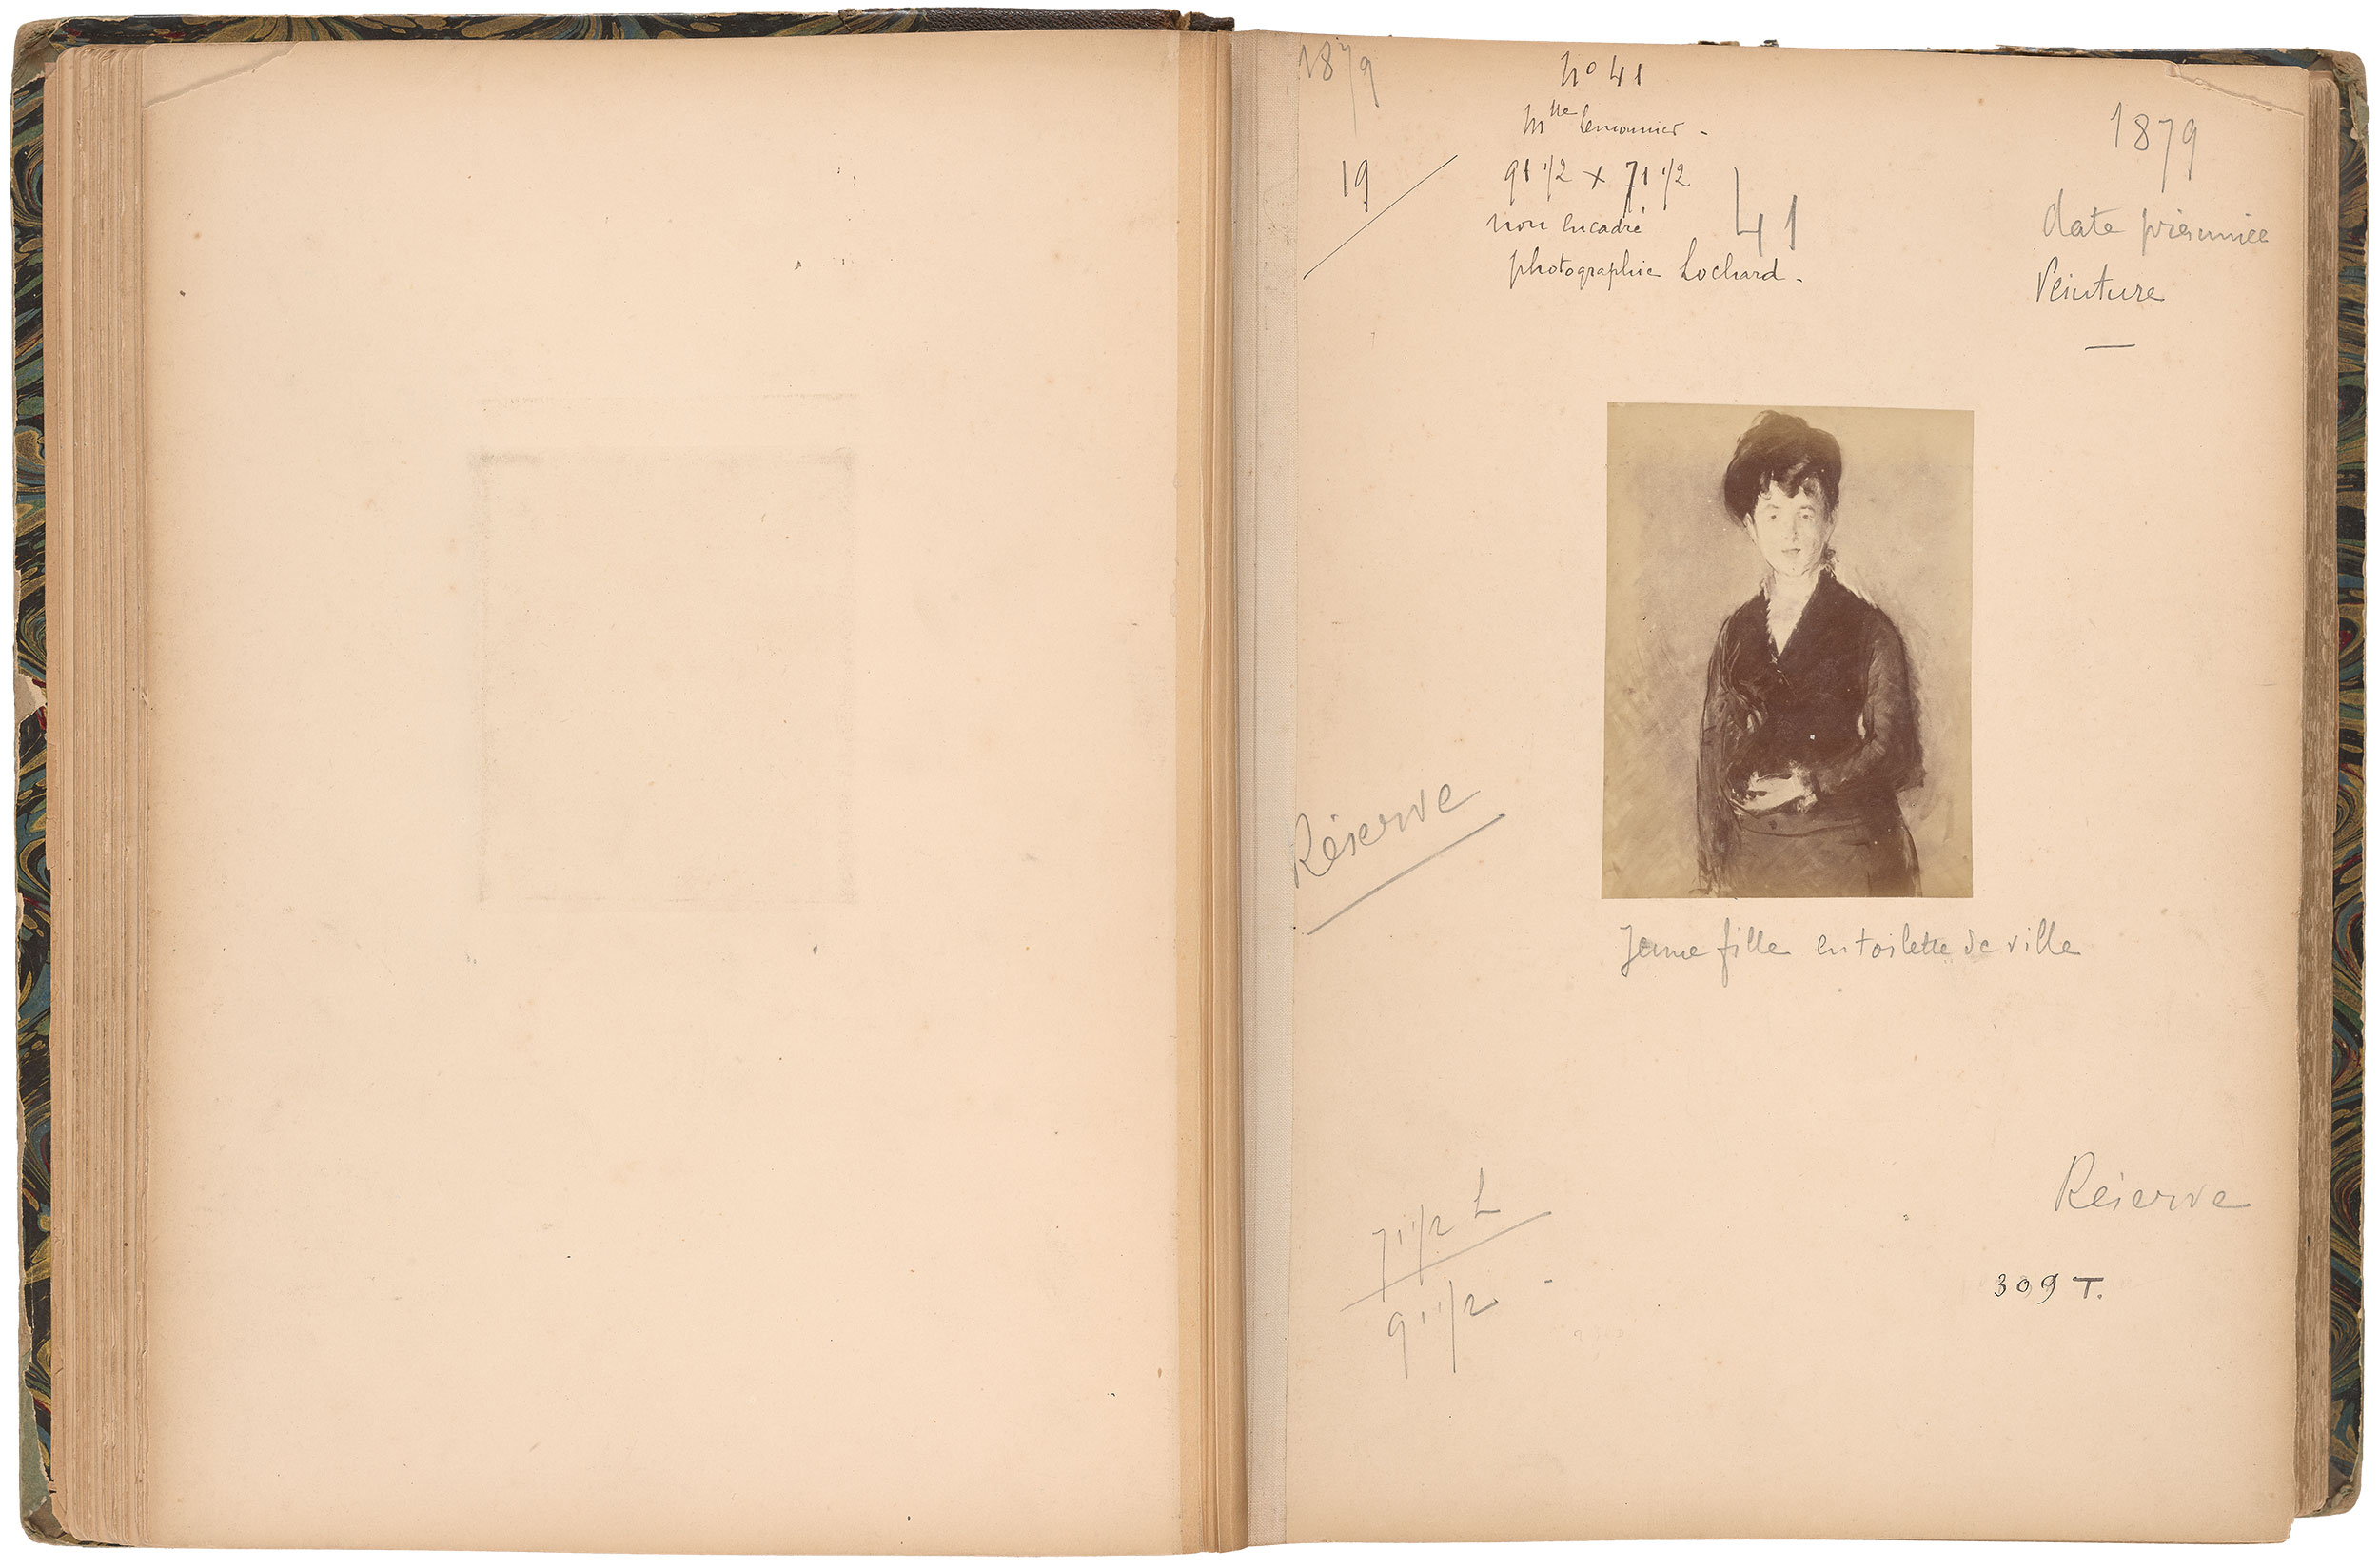 1879
nº 41
Mlle Lemonnier -
19
91 1/2 x 71 1/2
non encadré
41
photographie Lochard.
1879
date présumée
Peinture
Réserve
Jeune fille en toilette de ville
Réserve
309 T.
71 1/2 L
91 1/2